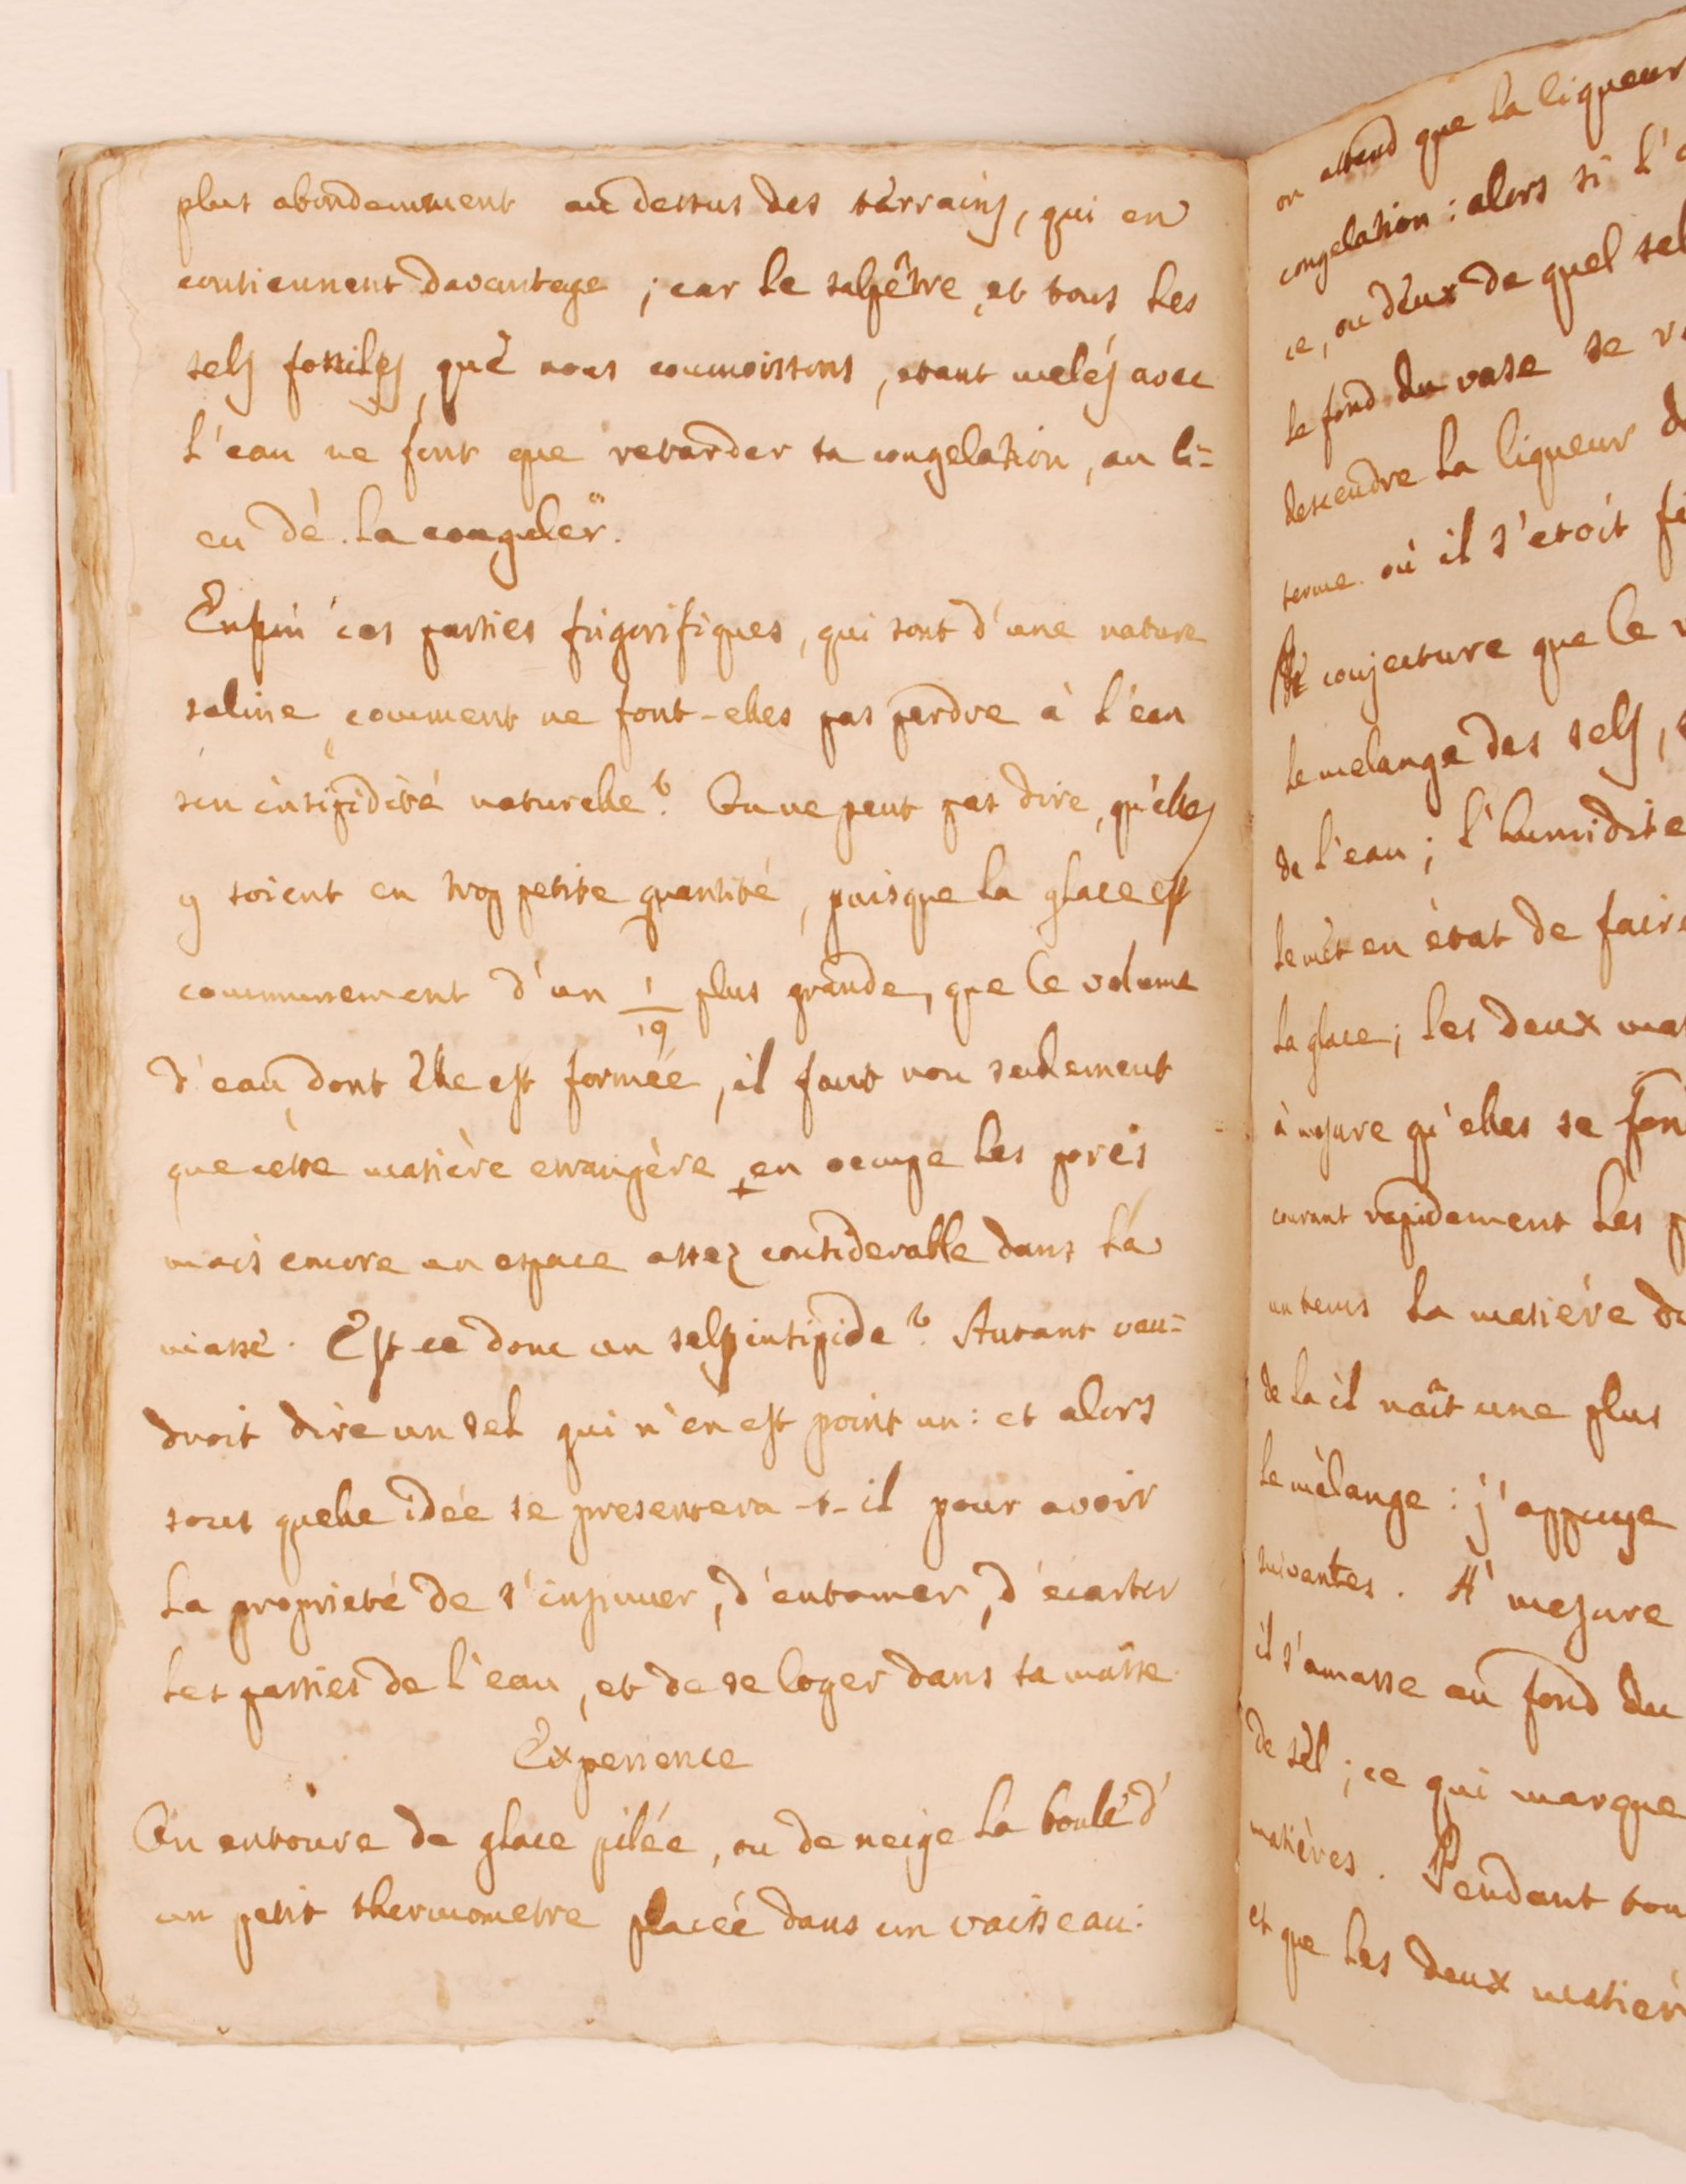 plus abondemment au dessus des terrains, qui en
contiennent davantage ; car le salpêtre, et tous les
sels fossiles, que nous connoissons, etant melés avec
l'eau ne font que retarder sa congelation, au li=
eu de la congeler.
Enfin ces parties frigorifiques, qui sont d'une nature
saline, comment ne font-elles pas perdre à l'eau
son insipidité naturelle? On ne peut pas dire, qu'elles
y soient en trop petite quantité, puisque la glace est
communement d'un 1/19 plus grande, que le volume
d'eau, dont elle est formée, il faut non seulement
que cette matière etrangère en ocupe les pores
mais encore un espace assez considerable dans la
masse. Est ce donc un sel insipide? Autant vau=
droit dire un sel qui n'en est point un : et alors
sous quelle idée se presentera-t-il pour avoir
la proprieté de s'insinuer, d'entamer, d'ecarter
les parties de l'eau, et de se loger dans sa masse.
Experience
On entoure de glace pilée, ou de neige la boule d'
un petit thermometre placée dans un vaisseau :
on attend que la liqueur
congelation : alors si l'
ce, ou deux de quel sel
le fond du vase se
descendre la liqueur
terme où il s'etoit
conjecture que le
le melange des sels,
de l'eau ; l'humidité
le met en état de faire
la glace ; les deux
à mesure qu'elles se
courant rapidement les
un tems la matière
de la il naît une plus
le mèlange : j'appuye
suivantes. A' mesure
il s'amasse au fond du
de sel ; ce qui marque
matières. Pendant
et que les deux